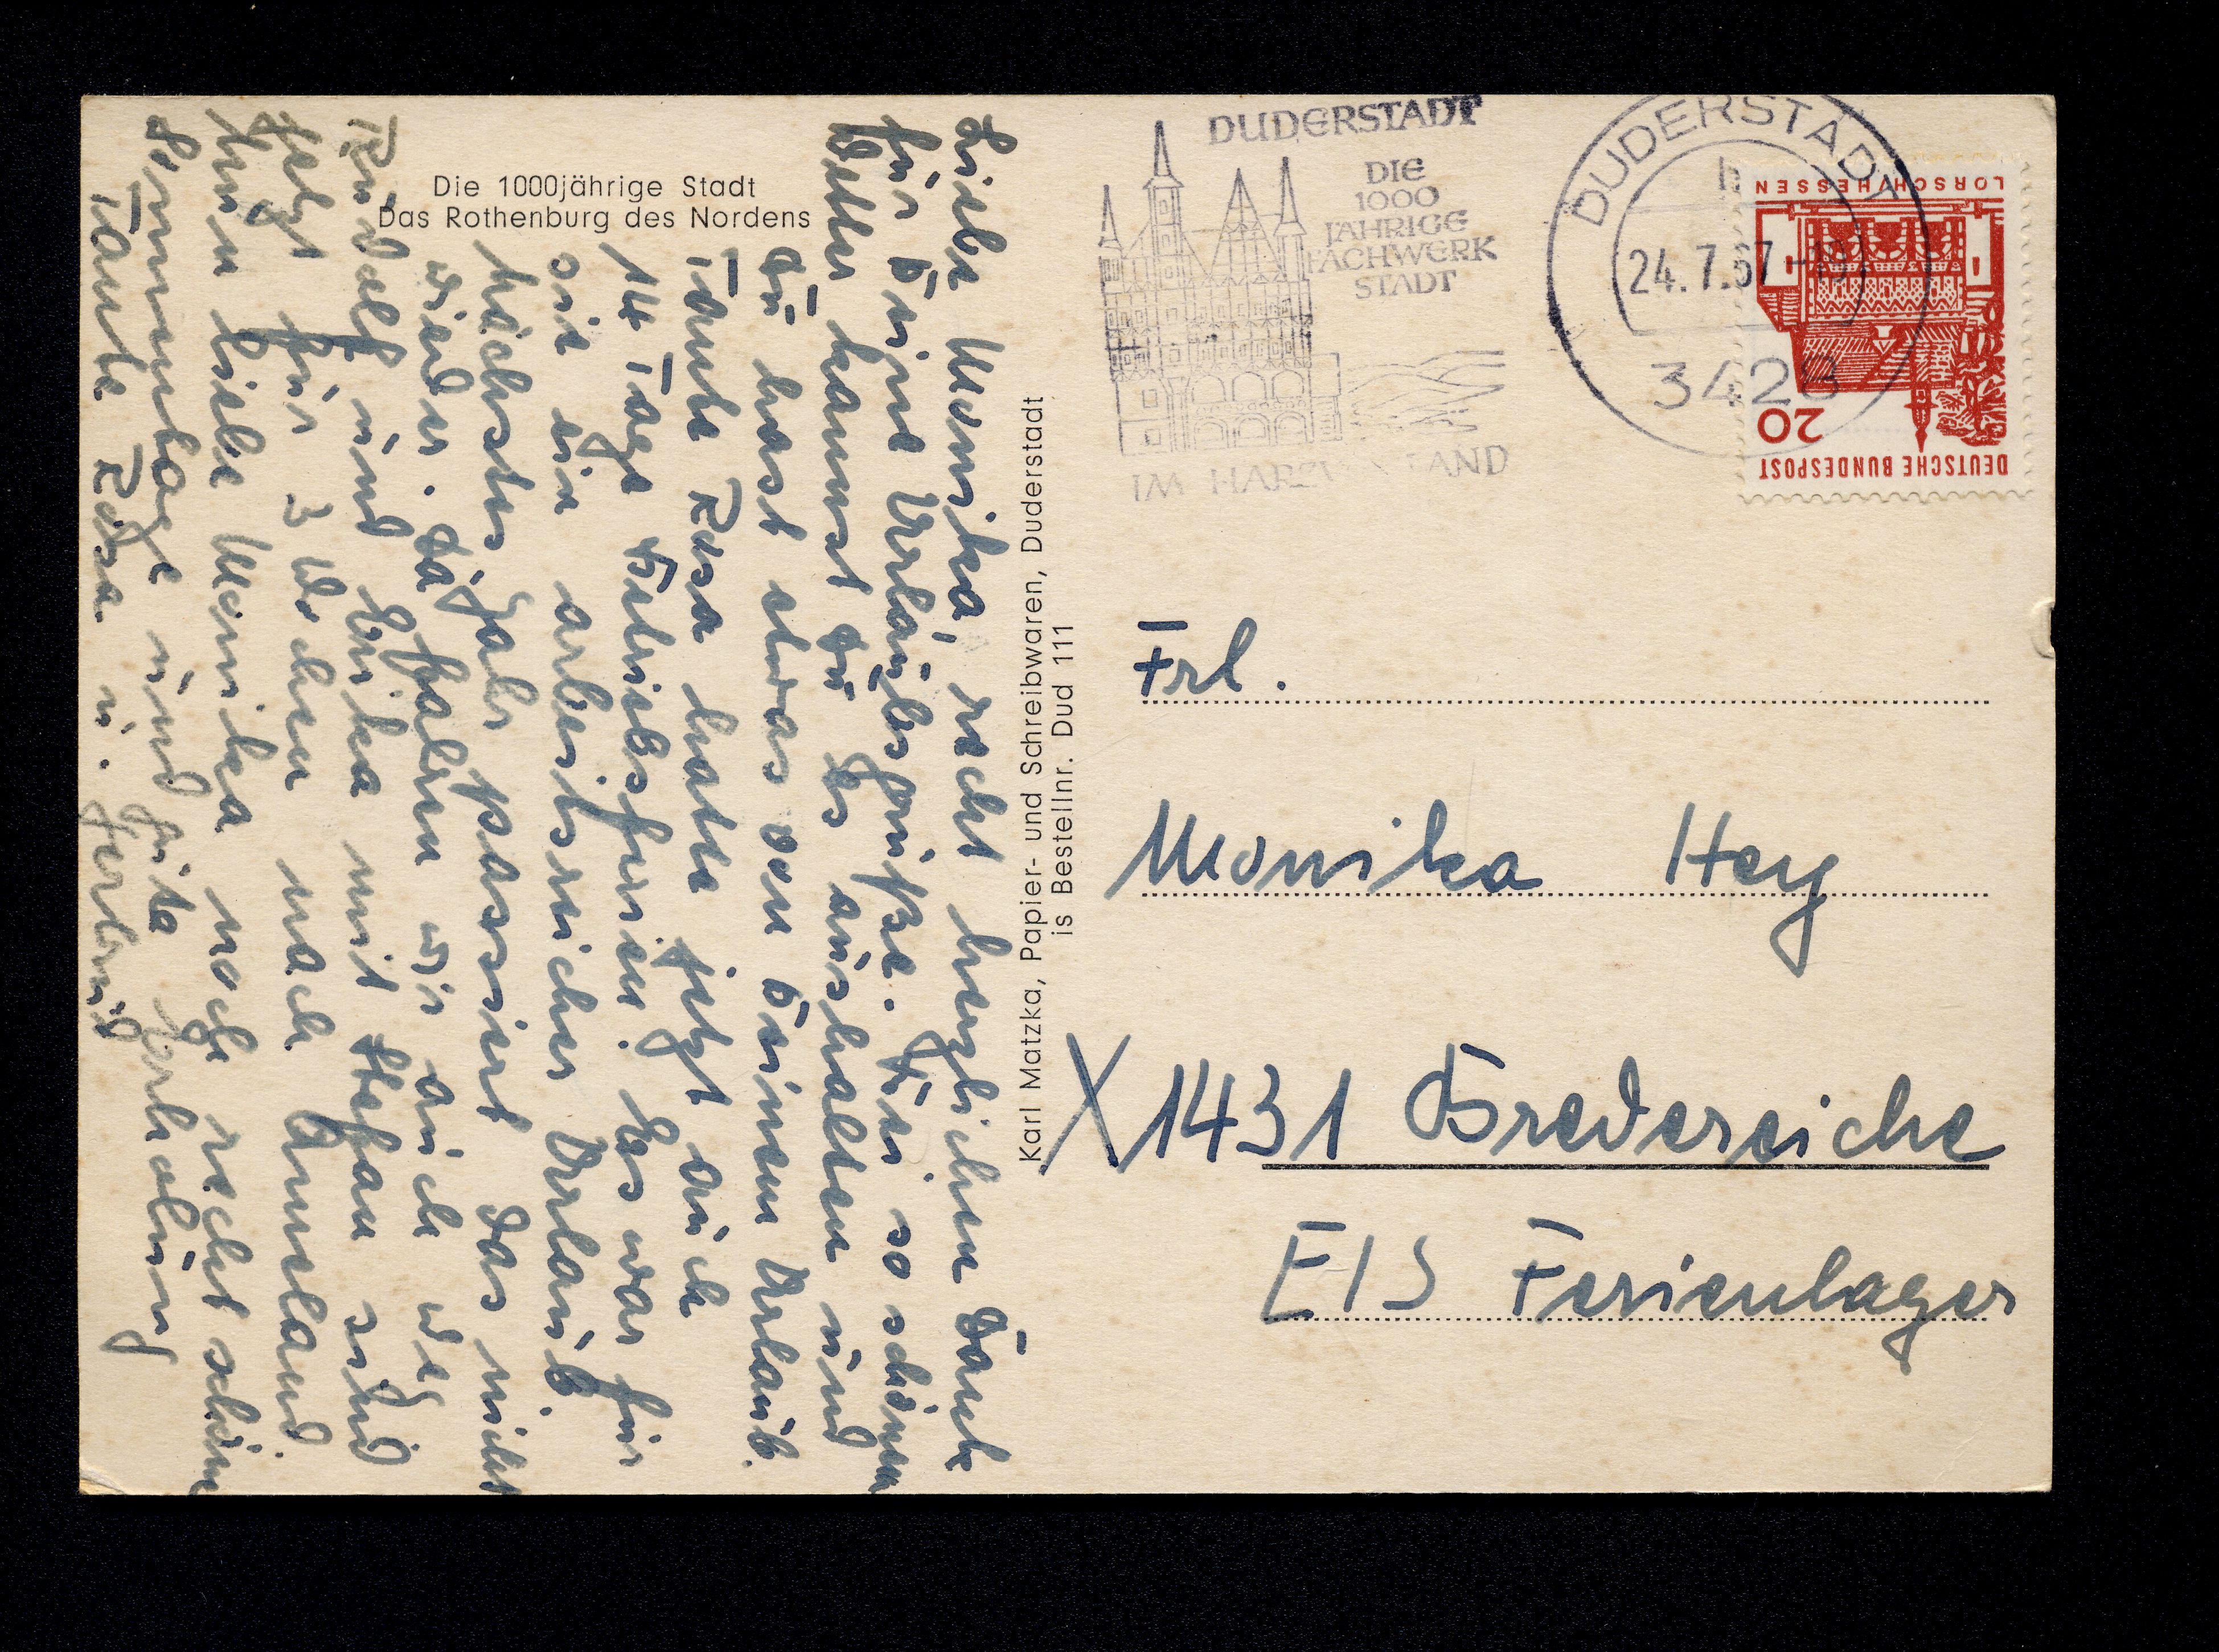 Die 1000jährige Stadt
Das Rothenburg des Nordens
Liebe Monika, recht herzlichen Dank
für Deine Urlaubsgrüße. Bei so schönem
Wetter kannst Du es aushalten und
Du hast etwas von Deinem Urlaub.
Tante Rosa hatte jetzt auch
14 Tage Betriebsferien. Es war für
sie ein arbeitsreicher Urlaub.
Nächstes Jahr passiert das nicht
wieder. Da fahren wir auch weg
Rudolf und Erika mit Stefan sind
jetzt für 3 Wochen nach Ameland.
Nun liebe Monika noch recht schöne
Sonnentage und gute Erholung
Tante Rosa u. Gertrud
Karl Matzka, Papier- und Schreibwaren, Duderstadt
is Bestellnr. Dud 111
DUDERSTADT
DIE
1000
JÄHRIGE
FACHWERK
STADT
IM HARZ LAND
DUDERSTADT
h
24.7.67-19
3428
LORSCH/HESSEN
20
DEUTSCHE BUNDESPOST
Frl.
Monika Hey
X 1431 Bredereiche
EIS Ferienlager